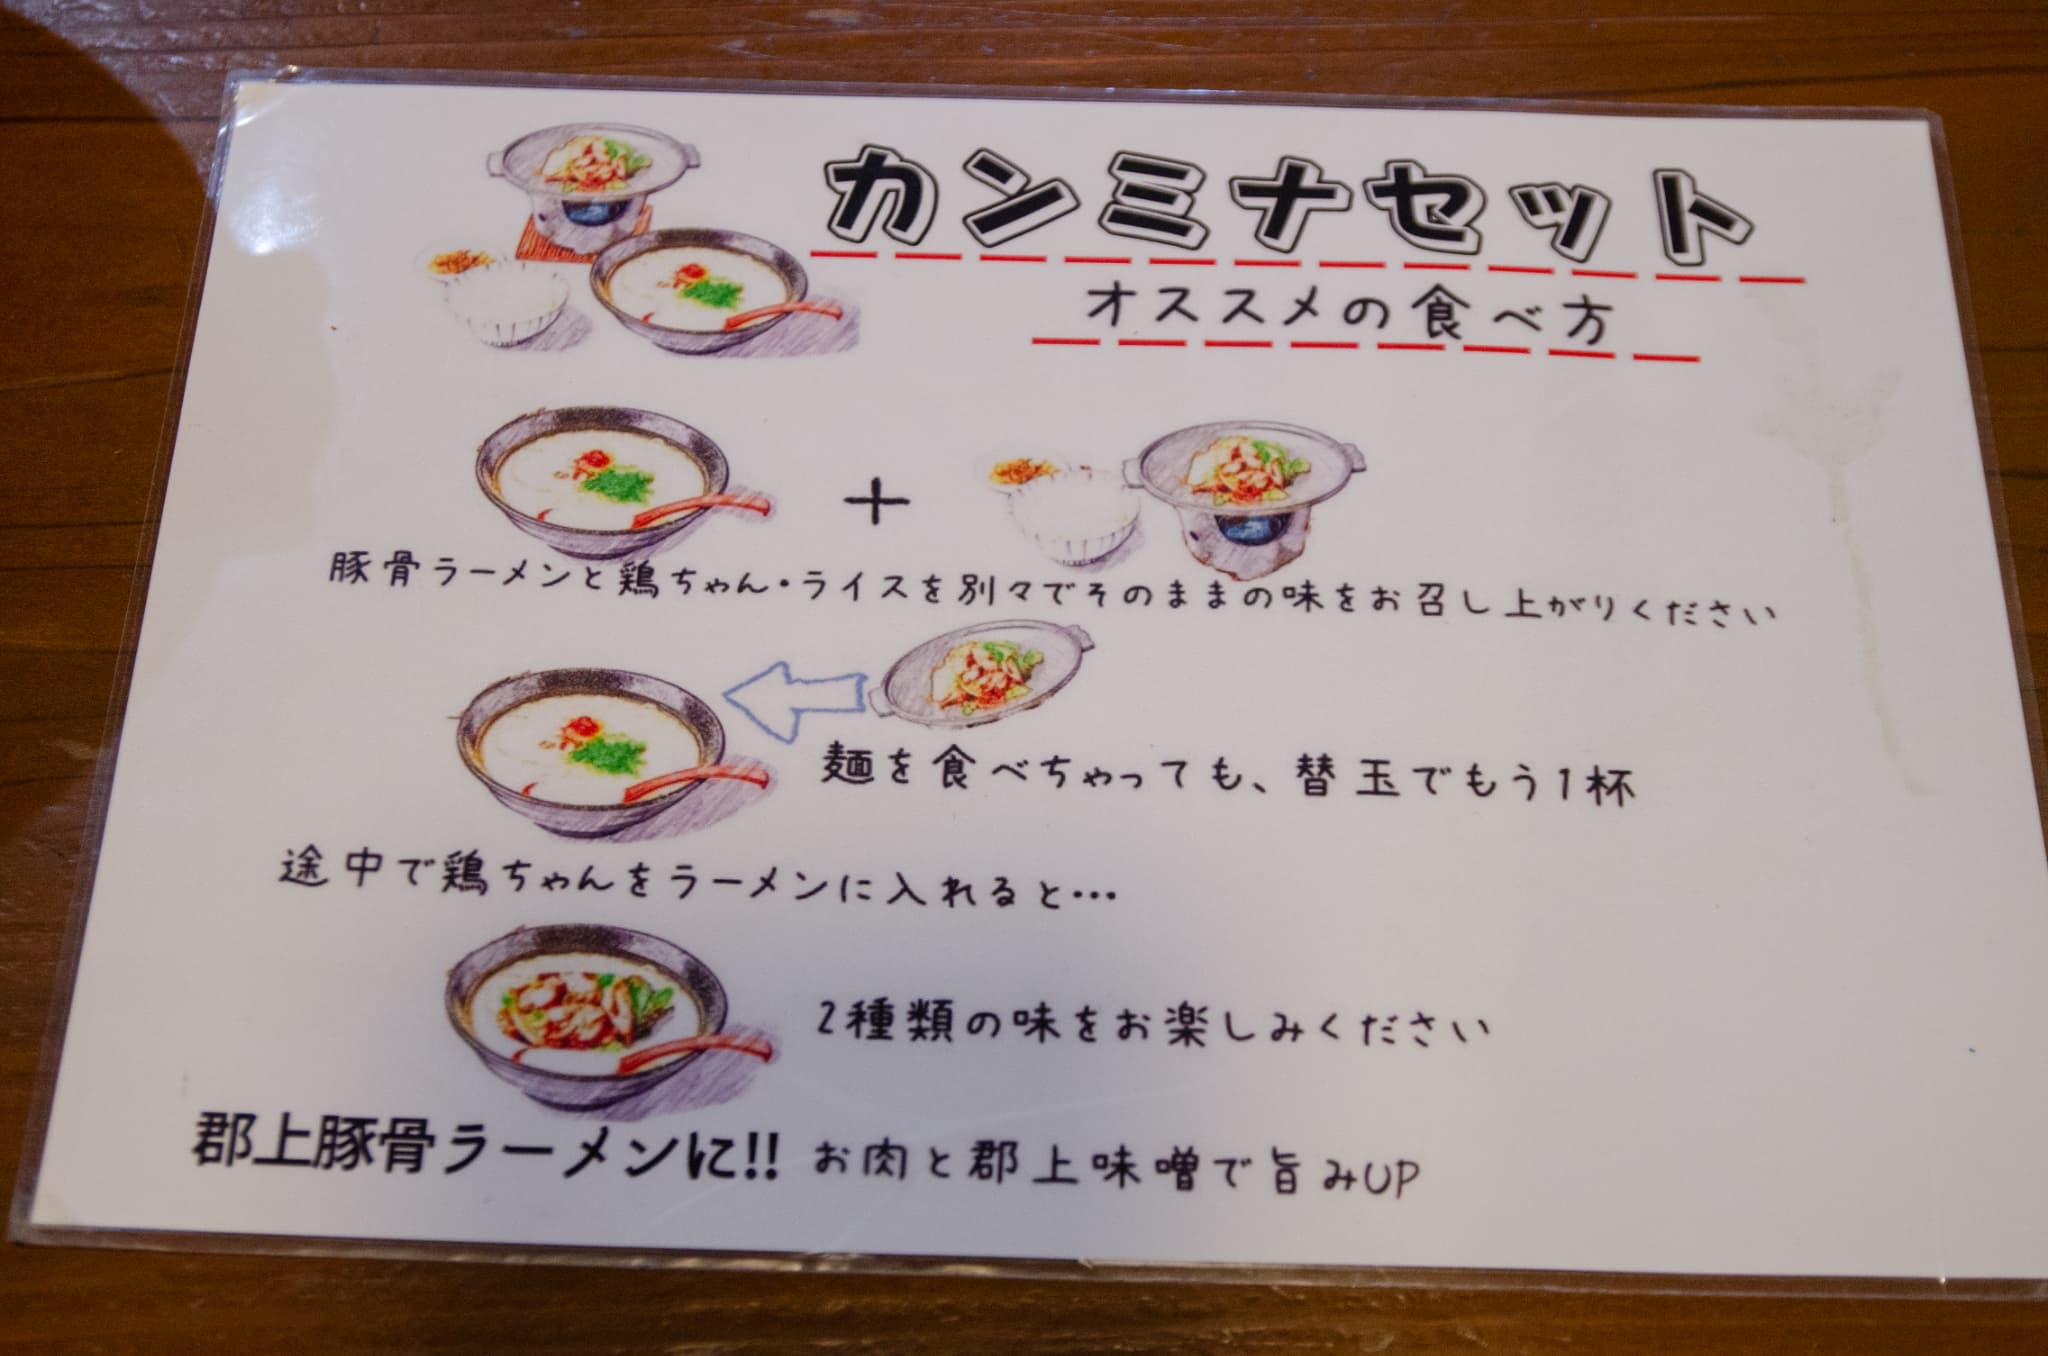 カンミナセット
オススメの食べ方
豚骨ラーメンと鶏ちゃん・ライスを別々でそのままの味をお召し上がりください
麺を食べちゃっても、替玉でもう1杯
途中で鶏ちゃんをラーメンに入れると…
2種類の味をお楽しみください
郡上豚骨ラーメンに!! お肉と郡上味噌で旨みUP